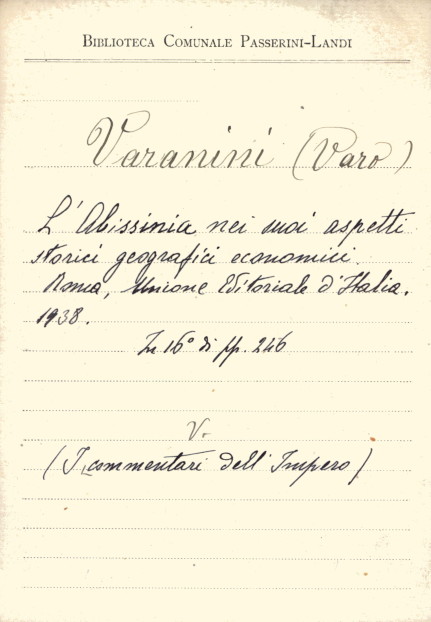 BIBLIOTECA COMUNALE PASSERINI-LANDI
Varanini (Varo)
L'Abissinia nei suoi aspetti
storici geografici economici.
Roma, Unione Editoriale d'Italia.
1938.
In 16° di pp. 246
V.
(I commentari dell'Impero)